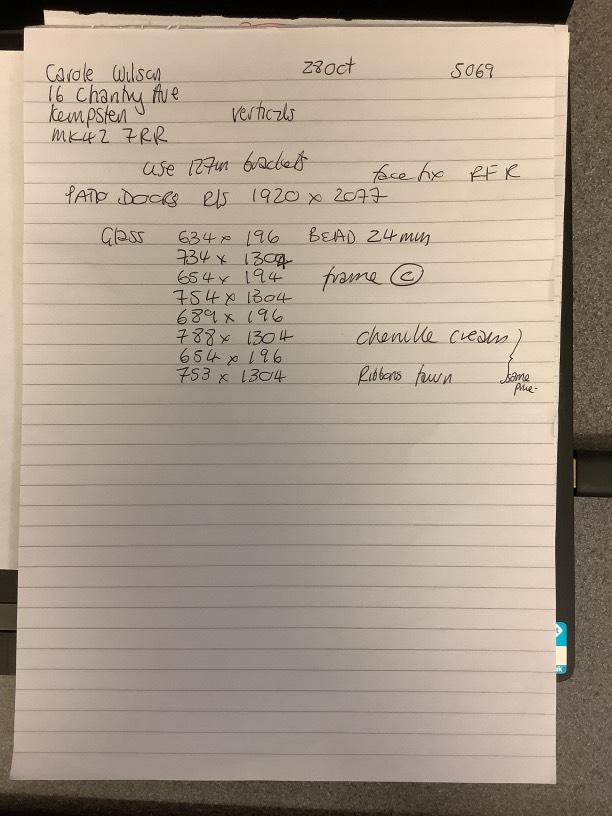 Carole Wilson 28 Oct 5069
16 Chantry Ave
Kempsten verticals
MK42 7RR
use 127mm brackets face fix RFR
PATIO DOORS R/S 1920 x 2077
Glass 634 x 196 BEAD 24mm
734 x 1304
654 x 194 frame C
754 x 1304
689 x 196
788 x 1304 chenille cream
654 x 196
753 x 1304 Ribbons fawn same
price